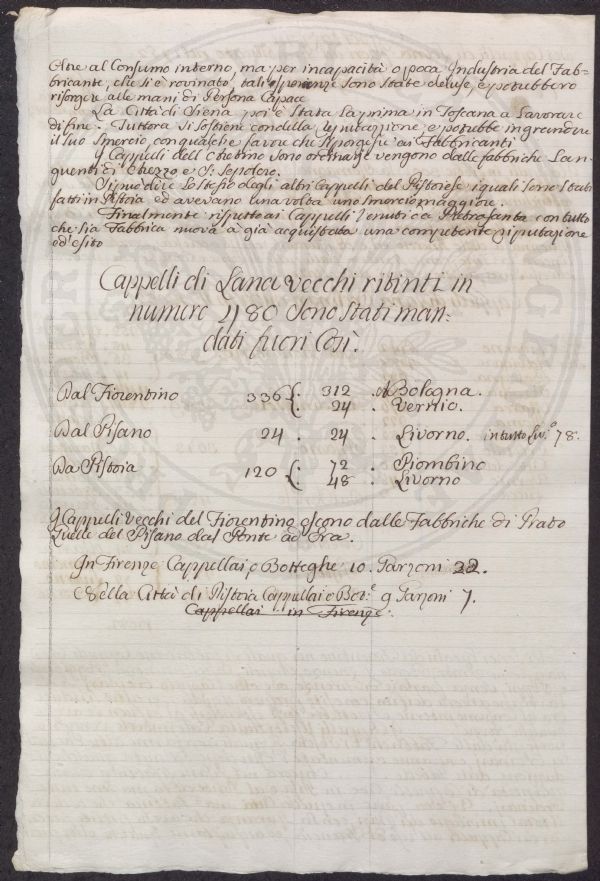 Oltre al Consumo interno, ma per incapacità o poca Industria del Fab-
bricante, che si è rovinato, tali speranze sono state deluse, e potrebbero
risorgere alle mani di Persona Capace
La Città di Siena poi è stata la prima in Toscana a Lavorare
di fine. Tuttora si sostiene con della reputazione, e potrebbe ingrandire
il suo smercio, con qualche favore che si porgesse ai Fabbricanti
I Cappelli dell'Aretino sono ordinari e vengono dalle fabbriche Lan-
guenti di Arezzo e S. Sepolcro.
Si può dire lo stesso degli altri Cappelli del Pistoiese i quali sono stati
fatti in Pistoia ed avevano una volta uno smercio maggiore.
Finalmente rispetto ai Cappelli Venuti da Pietrasanta con tutto
che sia Fabbrica nuova à già acquistata una competente riputazione
ed esito
Cappelli di Lana vecchi ritinti in
numero 1180 sono stati man-
dati fuori Così.
Dal Fiorentino 336 312 A Bologna.
24 Vernio.
Dal Pisano 24 24 Livorno. in tutto 78.
Da Pistoia 120 72 Piombino
48 Livorno
I Cappelli Vecchi del Fiorentino escono dalle Fabbriche di Prato
Quelle del Pisano dal Ponte ad Era.
In Firenze Cappellai o Botteghe 10. Garzoni 22.
Nella Città di Pistoia Cappellai o Bot.e 9 Garzoni 7.
Cappellai in Firenze.